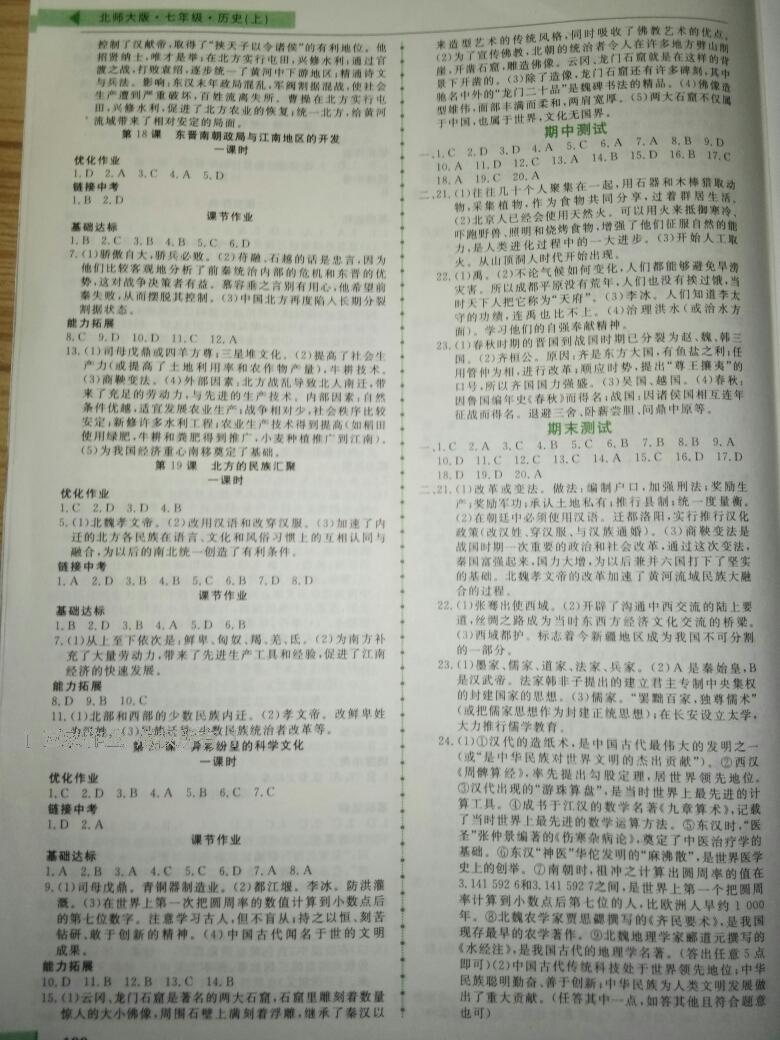 北师大版·七年级·历史(上)
控制了汉献帝,取得了“挟天子以令诸侯”的有利地位。他
招贤纳士,唯才是举;在北方实行屯田,兴修水利;通过官
渡之战,打败袁绍,逐步统一了黄河中下游地区;精通诗文
与兵法。影响:东汉末年政局混乱,军阀割据混战,使社会
生产遭到严重破坏,百姓流离失所。曹操在北方实行屯
田,兴修水利,促进了北方农业的恢复;统一北方,给黄河
流域带来了相对安定的局面。
第18课 东晋南朝政局与江南地区的开发
一课时
优化作业
1.D 2.A 3.C 4.A 5.D
链接中考
1.B 2.D
课节作业
基础达标
1.B 2.C 3.B 4.B 5.C 6.D
7.(1)骄傲自大,骄兵必败。(2)苻融、石越的话是忠言,因为
他们比较客观地分析了前秦统治内部的危机和东晋的优
势,这对战争决策者有益。慕容垂之言别有用心,他希望前
秦失败,从而摆脱其控制。(3)中国北方再度陷入长期分裂
割据状态。
能力拓展
8.C 9.D 10.D 11.C 12.A
13.(1)司母戊鼎或四羊方尊;三星堆文化。(2)提高了社会生
产力(或提高了土地利用率和农作物产量),牛耕技术。
(3)商鞅变法。(4)外部因素:北方战乱导致北人南迁,带
来了充足的劳动力,与先进的生产技术。内部因素:自然
条件优越,适宜发展农业生产;战争相对少,社会秩序比较
安定;新修许多水利工程;农业生产技术得到提高(如稻田
使用绿肥,牛耕和粪肥得到推广,小麦种植推广到江南)。
(5)为我国经济重心南移奠定了基础。
第19课 北方的民族汇聚
一课时
优化作业
1.C 2.D 3.D 4.B
5.(1)北魏孝文帝。(2)改用汉语和改穿汉服。(3)加速了内
迁的北方各民族在语言、文化和风俗习惯上的互相认同与
融合,为以后的南北统一创造了有利条件。
链接中考
1.A 2.D 3.B 4.B 5.C 6.B 7.D 8.D
课节作业
基础达标
1.B 2.D 3.B 4.A 5.C 6.D
7.(1)从上至下依次是:鲜卑、匈奴、羯、羌、氐。(2)为南方补
充了大量劳动力,带来了先进生产工具和经验,促进了江南
经济的快速发展。
能力拓展
8.D 9.B 10.C
11.(1)北部和西部的少数民族内迁。(2)孝文帝。改鲜卑姓
为汉姓。(3)民族迁徙、少数民族统治者改革等。
课 异彩纷呈的科学文化
一课时
优化作业
1.C 2.D 3.B 4.A 5.C 6.C 7.C
链接中考
1.D 2.A
课节作业
基础达标
1.A 2.C 3.B 4.A 5.C 6.D 7.A 8.A
9.(1)司母戊鼎。青铜器制造业。(2)都江堰。李冰。防洪灌
溉。(3)在世界上第一次把圆周率的数值计算到小数点后
的第七位数字。注意学习古人,但不盲从;持之以恒、刻苦
钻研、敢于创新的精神。(4)中国古代闻名于世的文明
成果。
能力拓展
10.D 11.B 12.B 13.C 14.B
15.(1)云冈、龙门石窟是著名的两大石窟,石窟里雕刻着数量
惊人的大小佛像,周围石壁上满刻着浮雕,继承了秦汉以
来造型艺术的传统风格,同时吸收了佛教艺术的优点。
(2)为了宣传佛教,北朝的统治者令人在许多地方劈山削
崖,开凿石窟,雕造佛像。云冈、龙门石窟就是在这样的背
景下开凿的。(3)除了造像,龙门石窟还有许多碑刻,其中
驰名中外的“龙门二十品”是魏碑书法的精品。(4)佛像造
型雄伟,面部丰满而柔和,两肩宽厚。(5)两大石窟不仅属
于中国,也属于世界,文化无国界。
期中测试
一、1.C 2.D 3.D 4.A 5.C 6.A 7.A 8.B 9.D
10.A 11.D 12.C 13.A 14.B 15.D 16.B 17.C
18.A 19.C 20.A
二、21.(1)往往几十个人聚集在一起,用石器和木棒猎取动
物,采集植物,作为食物共同分享,过着群居生活。
(2)北京人已经会使用天然火。可以用火来抵御寒冷、
吓跑野兽、照明和烧烤食物,增强了他们征服自然的能
力,是人类进化过程中的一大进步。(3)开始人工取
火。从山顶洞人时代开始出现。
22.(1)禹。(2)不论气候如何变化,人们都能够避免旱涝
灾害。所以成都平原没有荒年,人们也没有挨过饿,当
时天下人把它称为“天府”。(3)李冰。人们知道李太
守的功绩,连禹也比不上。(4)治理洪水(或治水方
面)。学习他们的自强奉献精神。
23.(1)春秋时期的晋国到战国时期已分裂为赵、魏、韩三
国。(2)齐桓公。原因:齐是东方大国,有鱼盐之利;任
用管仲为相,进行改革;顺应时势,提出“尊王攘夷”的
口号,所以齐国国力强盛。(3)吴国、越国。(4)春秋;
因鲁国编年史《春秋》而得名;战国:因诸侯国相互连年
征战而得名。退避三舍、卧薪尝胆、问鼎中原等。
期末测试
一、1.C 2.A 3.C 4.B 5.B 6.C 7.B 8.B 9.A
10.D 11.C 12.C 13.C 14.D 15.A 16.D 17.D
18.D 19.D 20.A
二、21.(1)改革或变法。做法:编制户口,加强刑法;奖励生
产;奖励军功;承认土地私有;推行县制;统一度量衡。
(2)在朝廷中必须使用汉语。迁都洛阳,实行推行汉化
政策(改汉姓、穿汉服、与汉族通婚)。(3)商鞅变法是
战国时期一次重要的政治和社会改革,通过这次变法,
秦国富强起来,国力大增,为以后兼并六国打下了坚实
的基础。北魏孝文帝的改革加速了黄河流域民族大融
合的过程。
22.(1)张骞出使西域。(2)开辟了沟通中西交流的陆上要
道,丝绸之路成为当时东西方经济文化交流的桥梁。
(3)西域都护。标志着今新疆地区成为我国不可分割
的一部分。
23.(1)墨家、儒家、道家、法家、兵家。(2)A是秦始皇,B
是汉武帝。法家韩非子提出的建立君主专制中央集权
的封建国家的思想。(3)儒家。“罢黜百家,独尊儒术”
(或把儒家思想作为封建正统思想);在长安设立太学,
大力推行儒学教育。
24.(1)①汉代的造纸术,是中国古代最伟大的发明之一
(或“是中华民族对世界文明的杰出贡献”)。②西汉
《周髀算经》,率先提出勾股定理,居世界领先地位。
③汉代出现的“游珠算盘”,是当时世界上最先进的计
算工具。④成书于江汉的数学名著《九章算术》,记载
了当时世界上最先进的数学运算方法。⑤东汉时,“医
圣”张仲景编著的《伤寒杂病论》,奠定了中医治疗学的
基础。⑥东汉“神医”华佗发明的“麻沸散”,是世界医学
史上的创举。⑦南朝时,祖冲之计算出圆周率的值在
3.141 592 6和3.141 592 7之间,是世界上第一个把圆周
率计算到小数点后第七位的人,比欧洲人早约1 000
年。⑧北魏农学家贾思勰撰写的《齐民要术》,是我国
现存最早的农学著作。⑨北魏地理学家郦道元撰写的
《水经注》,是我国古代的地理学名著。(答出任意5点
即可)(2)中国古代传统科技处于世界领先地位;中华
民族聪明勤奋、善于创新;中华民族为人类文明发展做
出了重大贡献。(任答其中一点,如答其他且符合题意
也可)